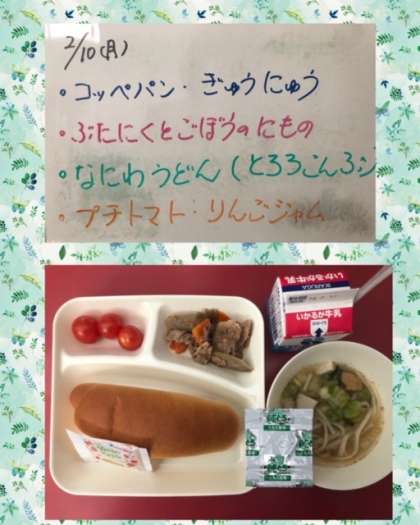 2/10(月)
・コッペパン・ぎゅうにゅう
・ぶたにくとごぼうのにもの
・なにわうどん(とろろこんぶ)
・プチトマト・りんごジャム
いかるが牛乳
いかるが牛乳